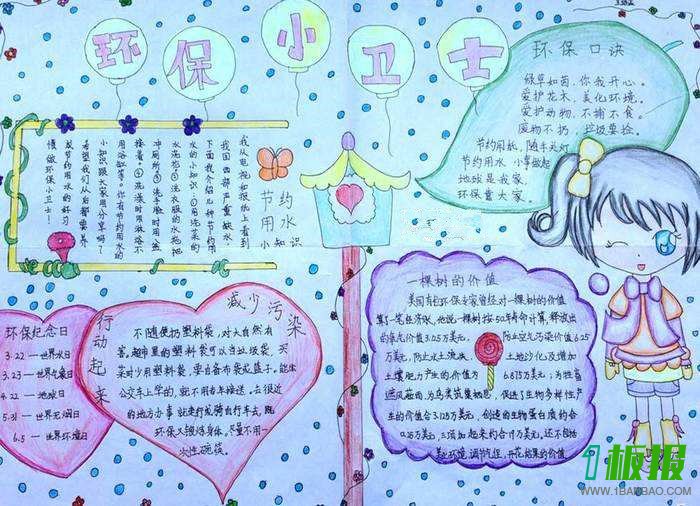 环保小卫士
环保口诀
绿草如茵,你我开心。
爱护花木,美化环境。
爱护动物,不捕不食。
废物不扔,垃圾要捡。
节约用纸,随手关灯
节约用水 小事做起
地球是我家,
环保靠大家。
节约
用水
小知识
我从电视和报纸上看到
我国西部严重缺水,
下面我介绍几种节约用
水的小知识:①用洗菜的
水浇花;②洗衣服的水拖地
冲厕所;③洗手脸时用盆
接着。④洗澡时用淋浴不
用浴缸等。你有节约用水的
小知识跟大家用分享吗?
希望我们从后都要养
成节约用水的好习
惯做环保小卫士!
一棵树的价值
美国有位环保专家曾经对一棵树的价值
算了一笔经济账,他说:一棵树按50年寿命计算,释放出
的氧气价值3.125万美元,防止空气污染价值6.25
万美元,防止水土流失、土地沙化及增加
土壤肥力产生的价值为6.875万美元;为牲畜
遮风避雨,为鸟类筑巢栖息,促进了生物多样性产
生的价值合3.125万美元,创造的生物蛋白质约合
0.25万美元,三项加起来约合19万美元。还不包括
美化环境、调节气侯、开花结果的价值
环保纪念日
3.22—世界水日
3.23—世界气象日
4.22—地球日
5.31—世界无烟日
6.5—世界环境日
减少污染
行动起来
不随便扔塑料袋,对大自然有
害,超市里的塑料袋可以当垃圾袋,买
菜时少用塑料袋,要自备布袋或篮子。能坐
公交车上学的,就不用爸车接送。去很近
的地方办事说走行或骑自行车去,既
环保又锻炼身体。尽量不用一
次性碗筷。
1板报
WWW.1BANBAO.COM